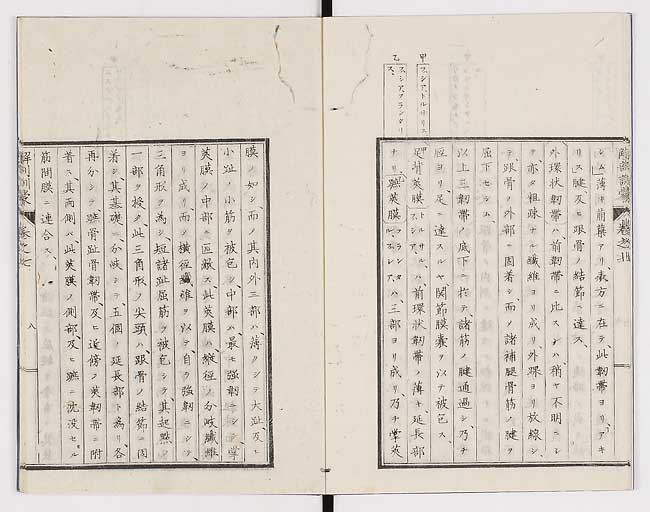 甲
フシアトルサリス
乙
フシアプランタリス
シム薄キ筋葉アリ後方ニ在テ此靱帯ヨリアキ
リス腱及ヒ跟骨ノ結節ニ達ス
外環状靱帯ハ前靱帯ニ比スレハ稍ヤ不明ニシ
テ亦タ粗疎ナル纎維ヨリ成リ外踝ヨリ放線シ
テ跟骨ノ外部ニ固着シ而ノ諸補腿骨筋ノ腱ヲ
屈下セシム
以上三靱帯ノ底下ニ於テ諸筋ノ腱通過シ乃チ
脛ヨリ足ニ達スルヤ関節膜嚢ヲ以テ被包ス
足骨莢膜ハ前環状靱帯ノ薄キ延長部
ナリ蹠莢膜ハ三部ヨリ成リ乃チ掌莢
膜ノ如シ而ノ其内外三部ハ薄クシテ大趾及ヒ
小趾ノ小筋ヲ被包シ中部ハ最モ強靱ニシテ掌
莢膜ノ中部ニ匹敵ス此莢膜ハ縦径ノ分岐纎維
ヨリ成リ而ノ横径纎維ヲ以テ自ラ強靱ニシテ
三角形ヲ為シ短諸趾屈筋ヲ被包シテ其起点ノ
一部ヲ授ク此三角形ノ尖頭ハ跟骨ノ結節ニ固
着シ其基礎ニ分岐シテ五個ノ延長部ト為リ各
再分シテ蹠骨趾骨靱帯及ヒ近傍ノ莢靱帯ニ附
着ス其両側ハ此莢膜ノ側部及ヒ蹠ニ沈没セル
筋間膜ニ連合ス
解剖訓蒙
巻之七
八